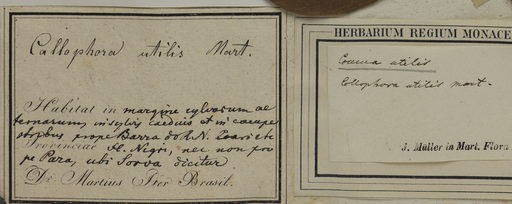 Collophora utilis Mart.
Habitat in margine sylvarum al
ternarum, in sylvis caeduis et in campe
stribus prope Barra do R. N. Coari etc
Provinciae R. Nigri, nec non pro
pe Para, ubi Sorva dicitur
Dr. Martius Iter Brasil.
HERBARIUM REGIUM MONACE
Couma utilis
Collophora utilis mart.
J. Müller in Mart. Flora